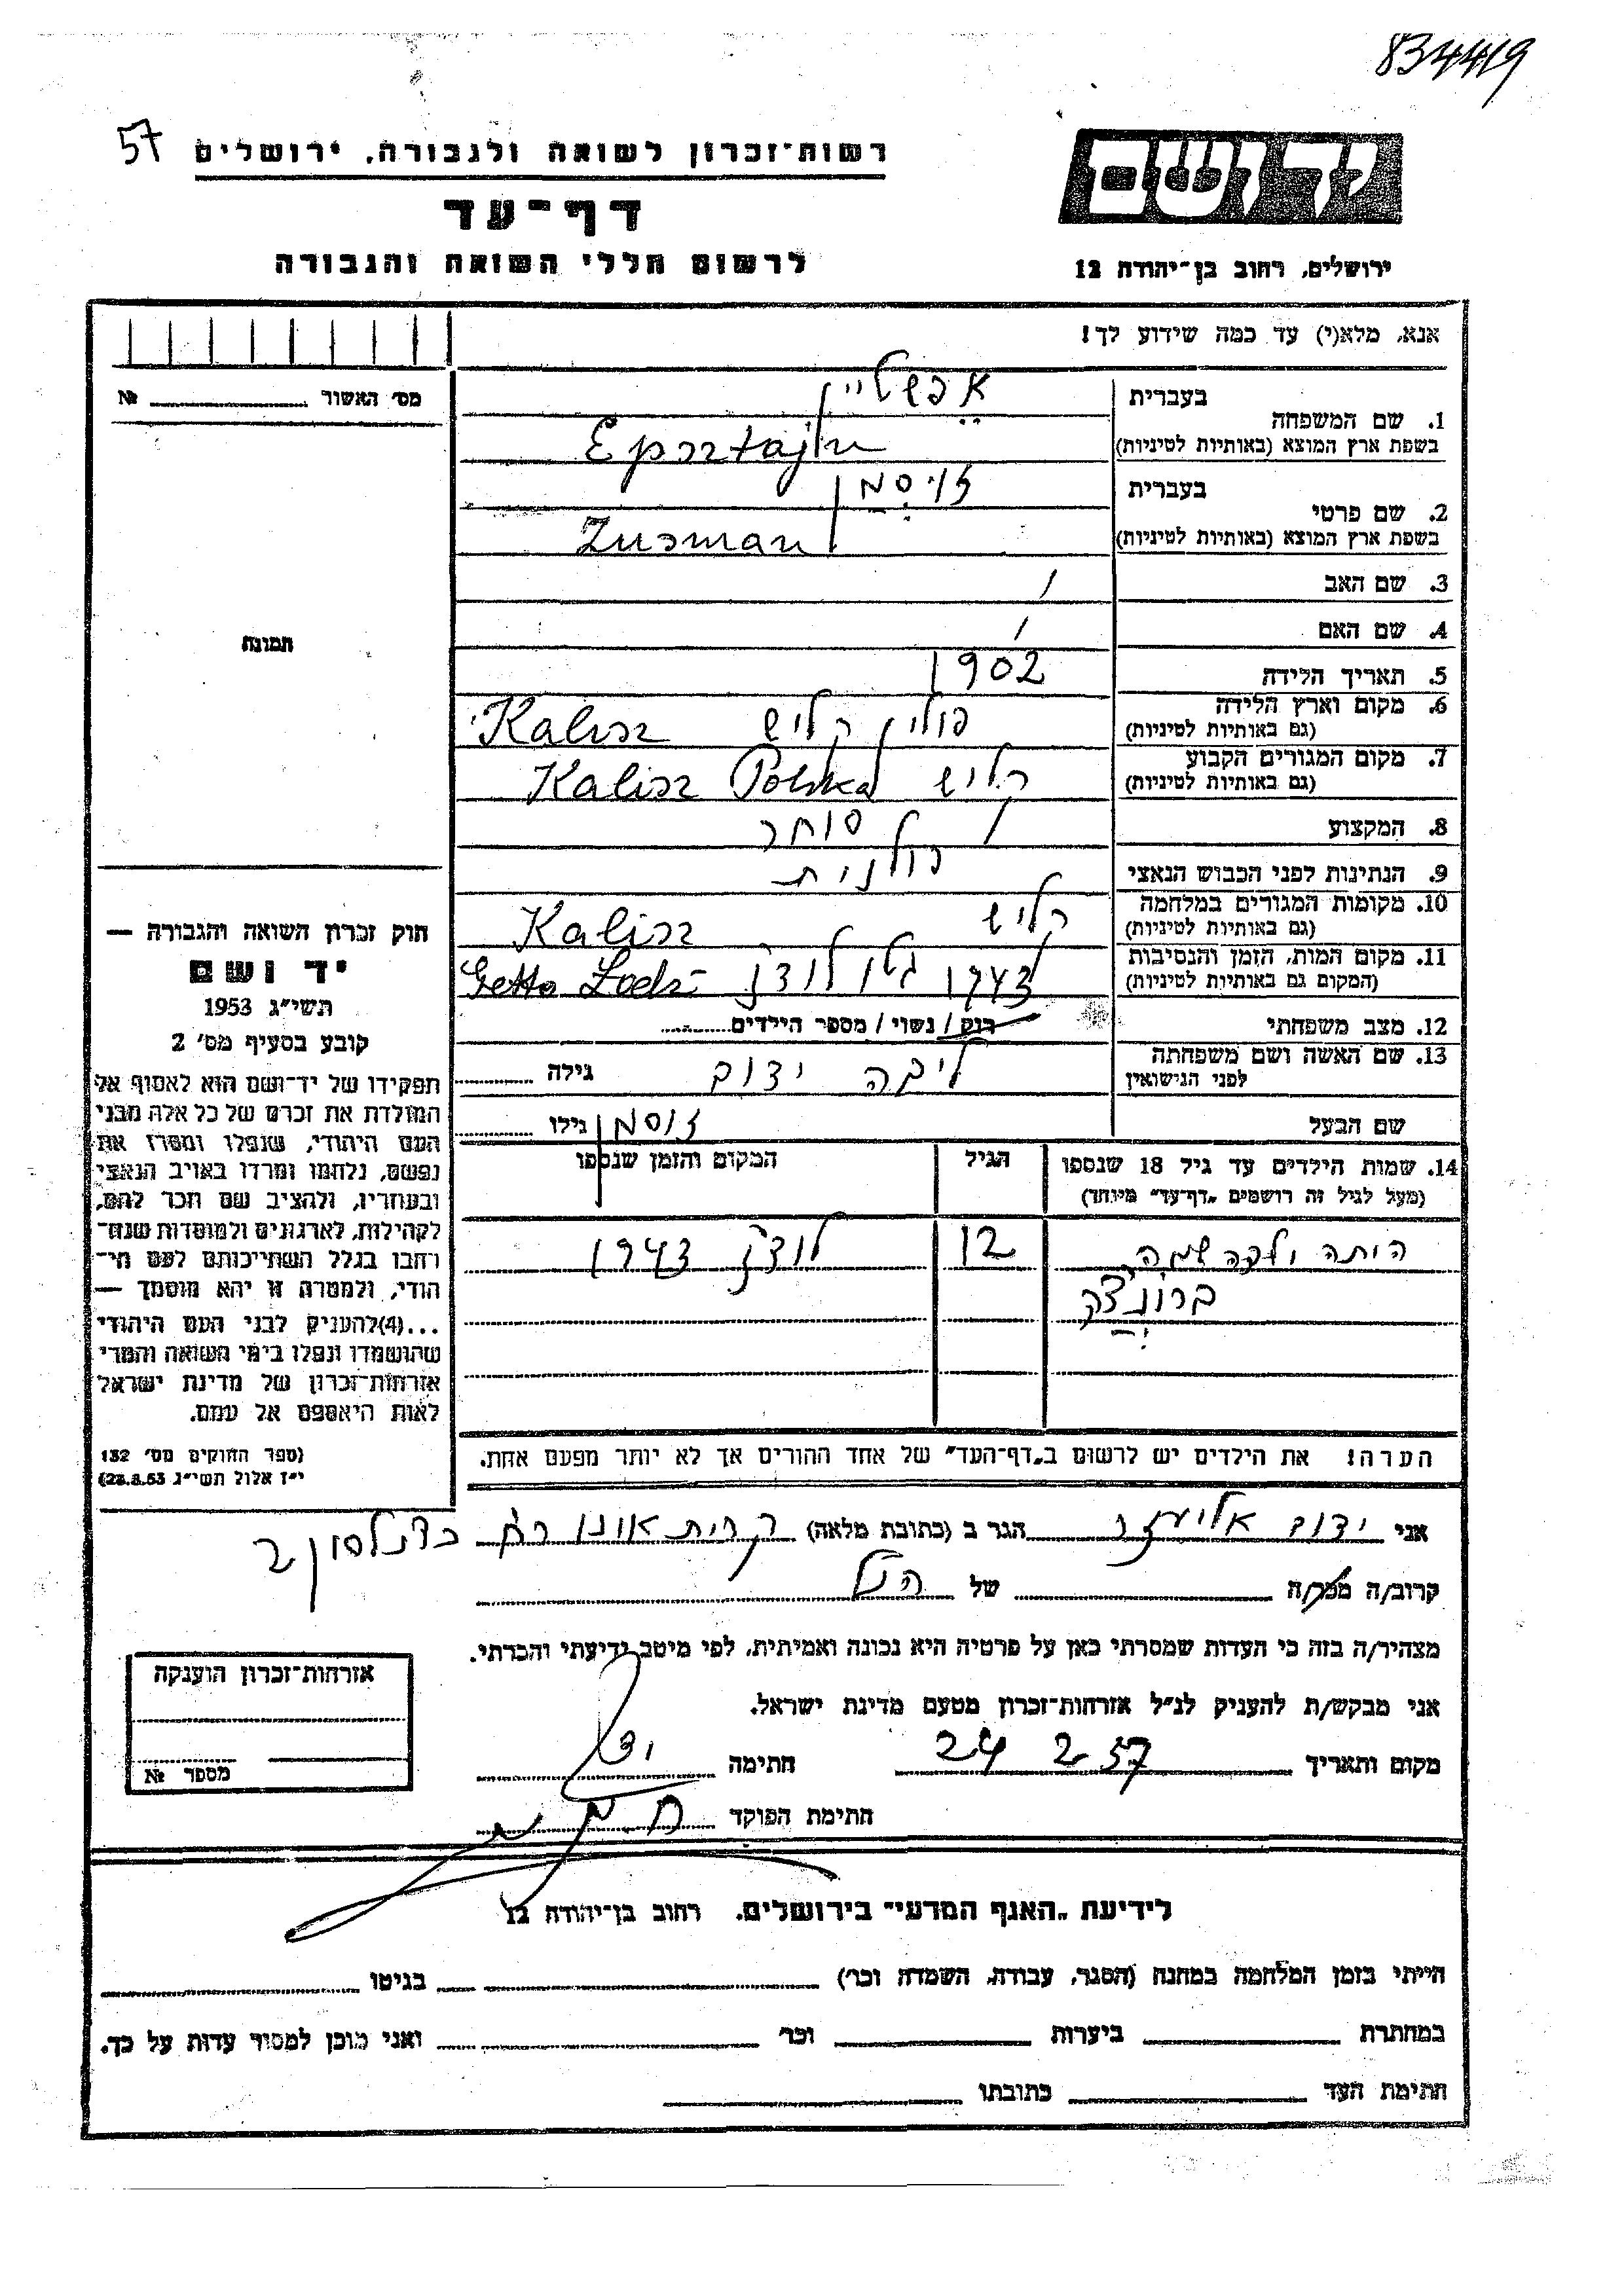 834419
57
רשות־זכרון לשואה ולגבורה, ירושלים
יד ושם
דף־עד
לרשום חללי השואה והגבורה
ירושלים, רחוב בן־יהודה 12
אנא, מלא(י) עד כמה שידוע לך!
מס׳ האשור № 
1. שם המשפחה בעברית אפשטיין
בשפת ארץ המוצא (באותיות לטיניות) Epsztajn
2. שם פרטי בעברית זיסמן
בשפת ארץ המוצא (באותיות לטיניות) Zusman
3. שם האב /
4. שם האם /
5. תאריך הלידה 1902
6. מקום וארץ הלידה פולין קליש Kalisz
(גם באותיות לטיניות)
7. מקום המגורים הקבוע קליש Kalisz Polska
(גם באותיות לטיניות)
8. המקצוע סוחר
9. הנתינות לפני הכבוש הנאצי פולנית
10. מקומות המגורים במלחמה קליש Kalisz
(גם באותיות לטיניות)
11. מקום המות, הזמן והנסיבות 1943 גטו לודז Getto Lodz
(המקום גם באותיות לטיניות)
12. מצב משפחתי רוק / נשוי / מספר הילדים
13. שם האשה ושם משפחתה ליבה גילה
לפני הנישואין
שם הבעל זוסמן גילו
14. שמות הילדים עד גיל 18 שנספו הגיל המקום והזמן שנספו
(מעל לגיל זה רושמים „דף־עד” מיוחד)
היתה ילדה שמה 12 לודז 1943
הערה! את הילדים יש לרשום ב„דף־העד” של אחד ההורים אך לא יותר מפעם אחת.
תמונה
חוק זכרון השואה והגבורה —
יד ושם
תשי״ג 1953
קובע בסעיף מס׳ 2
תפקידו של יד־ושם הוא לאסוף אל
המולדת את זכרם של כל אלה מבני
העם היהודי, שנפלו ומסרו את
נפשם, נלחמו ומרדו באויב הנאצי
ובעוזריו, ולהציב שם וזכר להם,
לקהילות, לארגונים ולמוסדות שנח־
רבו בגלל השתייכותם לעם הי־
הודי, ולמטרה זו יהא מוסמך —
...(4) להעניק לבני העם היהודי
שהושמדו ונפלו בימי השואה והמרי
אזרחות־זכרון של מדינת ישראל
לאות היאספם אל עמם.
(ספר החוקים מס׳ 132
י״ז אלול תשי״ג 28.8.53)
אני אליעזר הגר ב (כתובת מלאה) קרית אונו רח
קרוב/ה מכר/ה של הנ״ל
מצהיר/ה בזה כי העדות שמסרתי כאן על פרטיה היא נכונה ואמיתית, לפי מיטב ידיעתי והכרתי.
אני מבקש/ת להעניק לנ״ל אזרחות־זכרון מטעם מדינת ישראל.
מקום ותאריך 24 2 57 חתימה
חתימת הפוקד
אזרחות־זכרון הוענקה
מספר №
לידיעת „האגף המדעי” בירושלים. רחוב בן־יהודה 12
הייתי בזמן המלחמה במחנה (הסגר, עבודה, השמדה וכו׳) בגיטו
במחתרת ביערות וכו׳ ואני מוכן למסור עדות על כך.
חתימת העד כתובתו